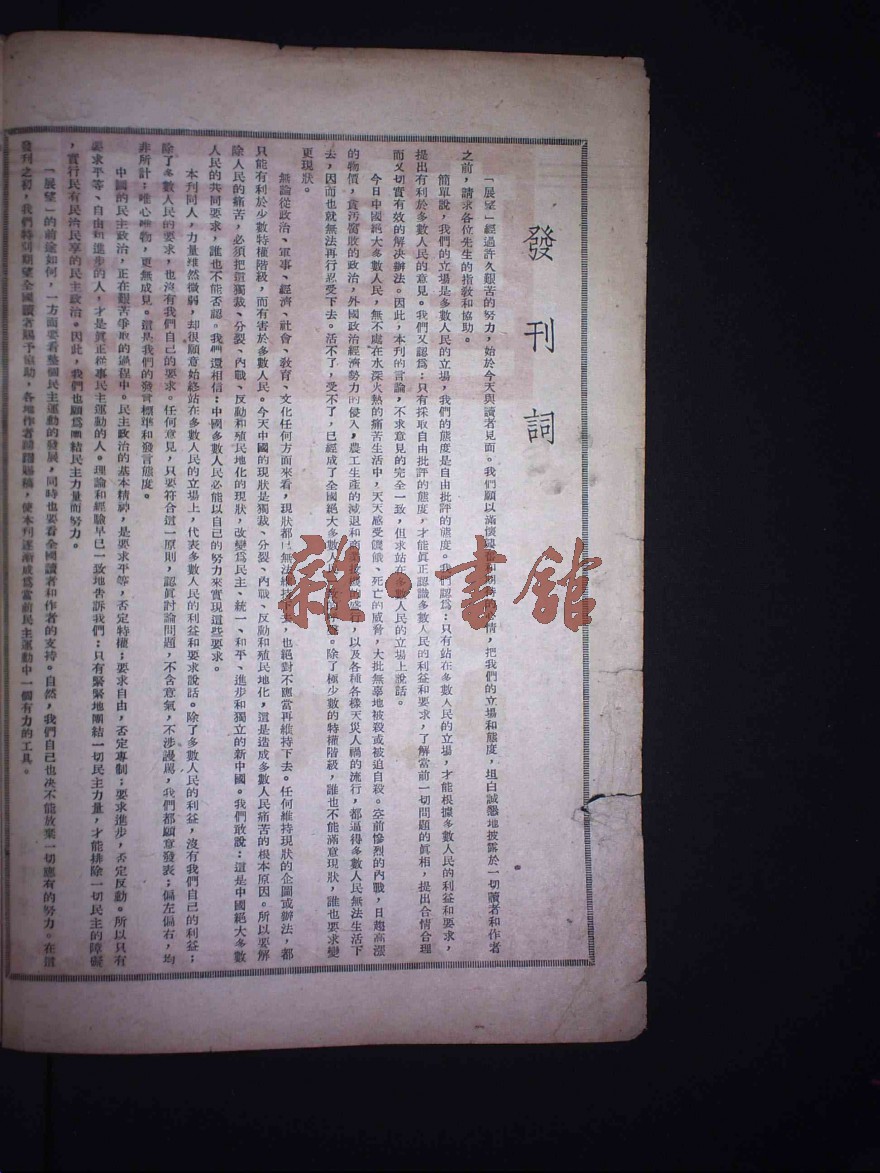 發刊詞
「展望」經過許久艱苦的努力，始於今天與讀者見面。我們願以滿懷 的 情，把我們的立場和態度，坦白誠懇地披露於一切讀者和作者
之前，請求各位先生的指教和協助。
簡單說，我們的立場是多數人民的立場，我們的態度是自由批評的態度。我們認爲：只有站在多數人民的立場，才能根據多數人民的利益和要求，
提出有利於多數人民的意見。我們又認爲：只有採取自由批評的態度，才能眞正認識多數人民的利益和要求，了解當前一切問題的眞相，提出合情合理
而又切實有效的解决辦法。因此，本刊的言論，不求意見的完全一致，但求站在多數人民的立場上說話。
今日中國絕大多數人民，無不處在水深火熱的痛苦生活中，天天感受饑餓、死亡的威脅，大批無辜地被殺或被迫自殺。空前慘烈的內戰，日趨高漲
的物價，貪汚腐敗的政治，外國政治經濟勢力的侵入，農工生產的減退和 的盛行，以及各種各樣天災人禍的流行，都逼得多數人民無法生活下
去，因而也就無法再行忍受下去。活不了，受不了，已經成了全國絕大多數人 。除了極少數的特權階級，誰也不能滿意現狀，誰也要求變
更現狀。
無論從政治、軍事、經濟、社會、敎育、文化任何方面來看，現狀都已無法維持下去，也絕對不應當再維持下去。任何維持現狀的企圖或辦法，都
只能有利於少數特權階級，而有害於多數人民。今天中國的現狀是獨裁、分裂、內戰、反動和殖民地化，這是造成多數人民痛苦的根本原因。所以要解
除人民的痛苦，必須把這獨裁、分裂、內戰、反動和殖民地化的現狀，改變爲民主、統一、和平、進步和獨立的新中國。我們敢說：這是中國絕大多數
人民的共同要求，誰也不能否認。我們還相信：中國多數人民必能以自己的努力來實現這些要求。
本刊同人，力量雖然微弱，却很願意始終站在多數人民的立場上，代表多數人民的利益和要求說話。除了多數人民的利益，沒有我們自己的利益；
除了多數人民的要求，也沒有我們自己的要求。任何意見，只要符合這一原則，認眞討論問題，不含意氣，不涉謾駡，我們都願意發表；偏左偏右，均
非所計；唯心唯物，更無成見。這是我們的發言標準和發言態度。
中國的民主政治，正在艱苦爭取的過程中。民主政治的基本精神，是要求平等，否定特權；要求自由，否定專制；要求進步，否定反動。所以只有
要求平等、自由和進步的人，才是眞正從事民主運動的人。理論和經驗早已一致地告訴我們：只有緊緊地團結一切民主力量，才能排除一切民主的障礙
，實行民有民治民享的民主政治。因此，我們也願爲團結民主力量而努力。
「展望」的前途如何，一方面要看整個民主運動的發展，同時也要看全國讀者和作者的支持。自然，我們自己也决不能放棄一切應有的努力。在這
發刊之初，我們特別期望全國讀者賜予協助，各地作者踴躍賜稿，使本刊逐漸成爲當前民主運動中一個有力的工具。
雜·書館